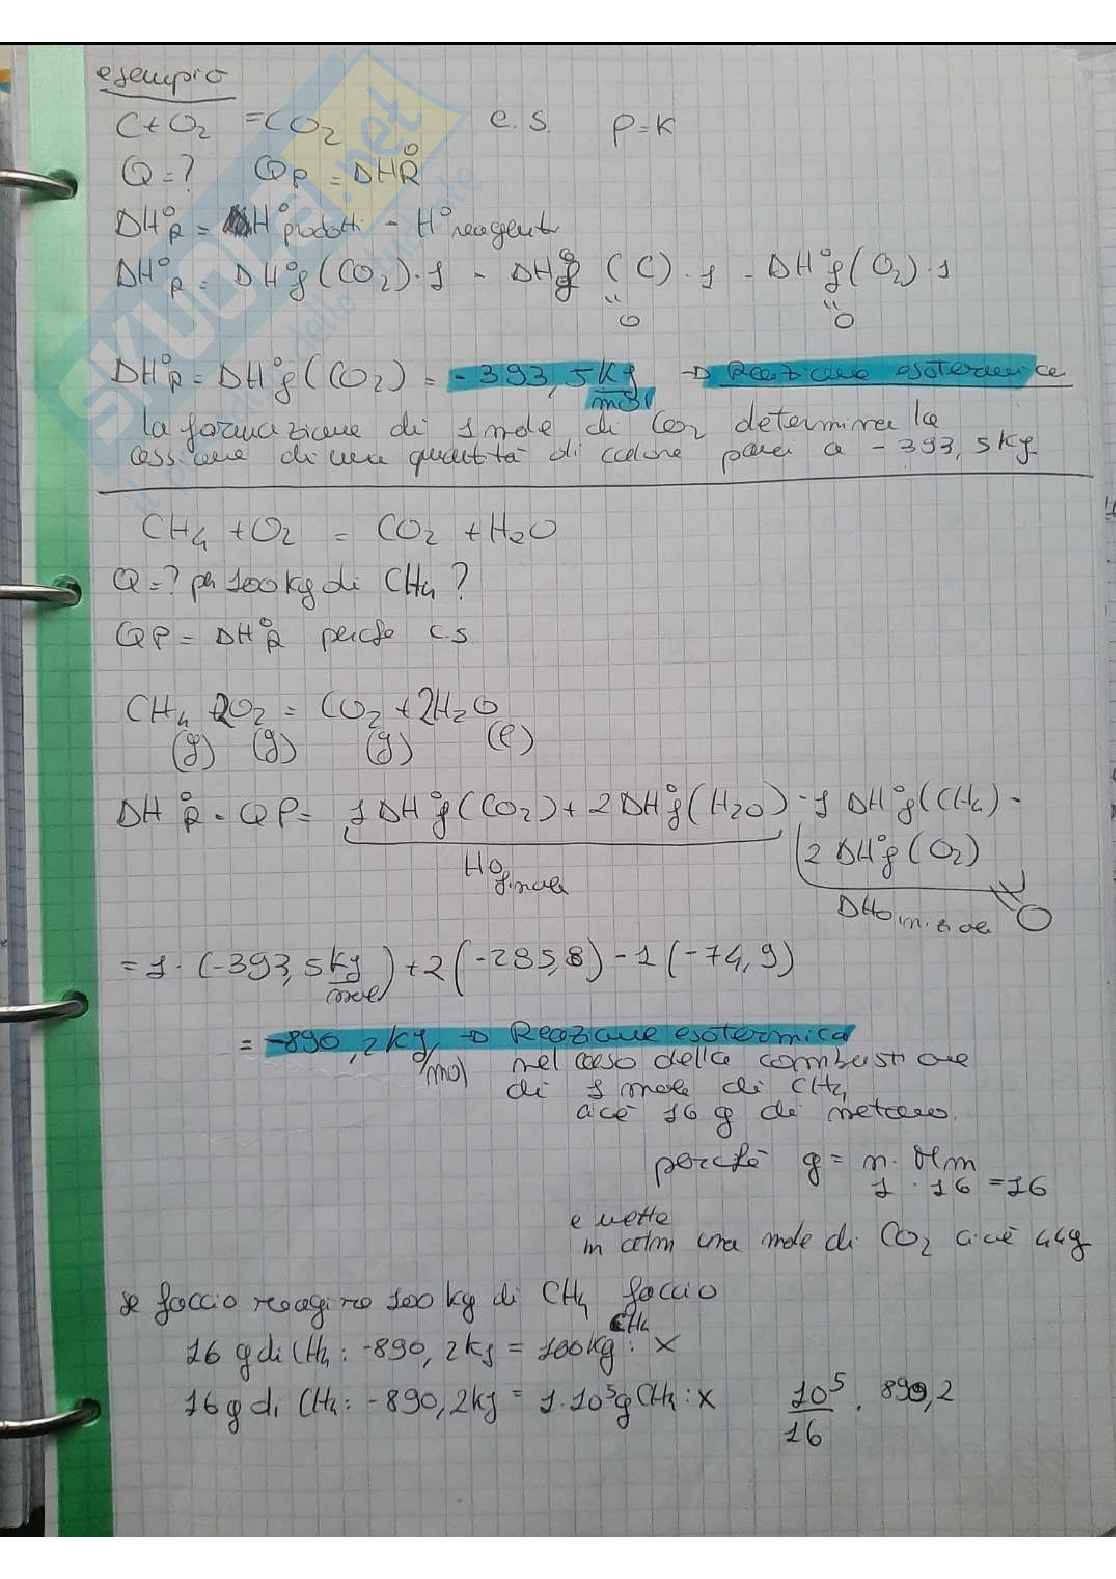 esempio
C+O₂ = CO₂ C.S. P=K
Q=? Qp = ΔH°R
ΔH°R = H°prodotti - H°reagenti
ΔH°R = ΔH°f(CO₂)·1 - ΔH°f (C)·1 - ΔH°f(O₂)·1
" O " O
ΔH°R = ΔH°f(CO₂) = -393,5 KJ/mol → Reazione esotermica
la formazione di 1 mole di CO₂ determina la
cessione di una quantità di calore pari a -393,5 KJ
CH₄ + O₂ = CO₂ + H₂O
Q=? per 100 kg di CH₄ ?
QP = ΔH°R perché C.S.
CH₄ + 2O₂ = CO₂ + 2H₂O
(g) (g) (g) (l)
ΔH°R = QP = 1ΔH°f(CO₂) + 2ΔH°f(H₂O) - 1 ΔH°f(CH₄) -
2 ΔH°f(O₂)
H°finale
ΔH°iniziale O
= 1·(-393,5 KJ/mole) + 2(-285,8) - 1(-74,9)
= -890,2 KJ/mol → Reazione esotermica
nel caso della combustione
di 1 mole di CH₄
cioè 16 g di metano.
perché g = n·Mm
1·16 = 16
e mette
in atm una mole di CO₂ cioè 44g
se faccio reagire 100 kg di CH₄ faccio
16 g di CH₄ : -890,2 KJ = 100 kg CH₄ : X
16 g di CH₄ : -890,2 KJ = 1·10⁵ g CH₄ : X 10⁵/16 · 890,2
SKUOLA.net